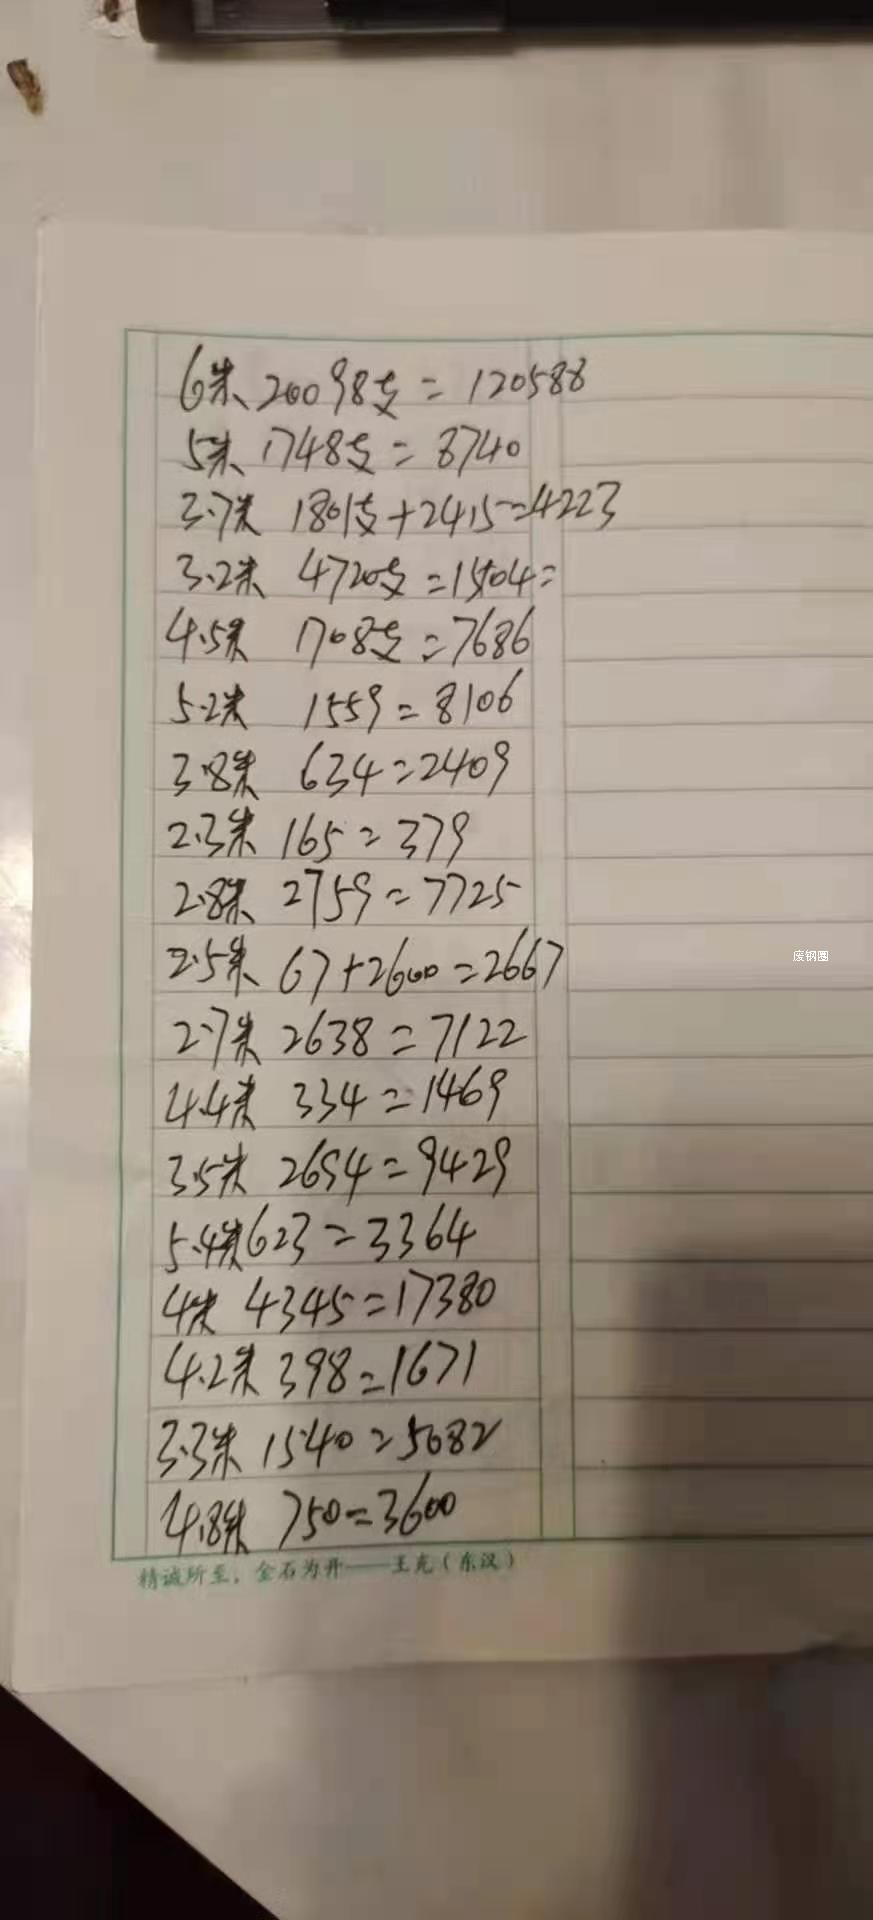 6米 20098支 = 120588
5米 1748支 = 8740
3.7米 1801支+2415=4223
3.2米 4720支 =15104=
4.5米 1708支 =7686
5.2米 1559=8106
3.8米 634=2409
2.3米 165=379
2.8米 2759=7725
2.5米 67+2600=2667
2.7米 2638=7122
4.4米 334=1469
3.5米 2694=9429
5.4米 623=3364
4米 4345=17380
4.2米 398=1671
3.3米 1540=5082
4.8米 750=3600
精诚所至,金石为开——王充(东汉)
废钢圈